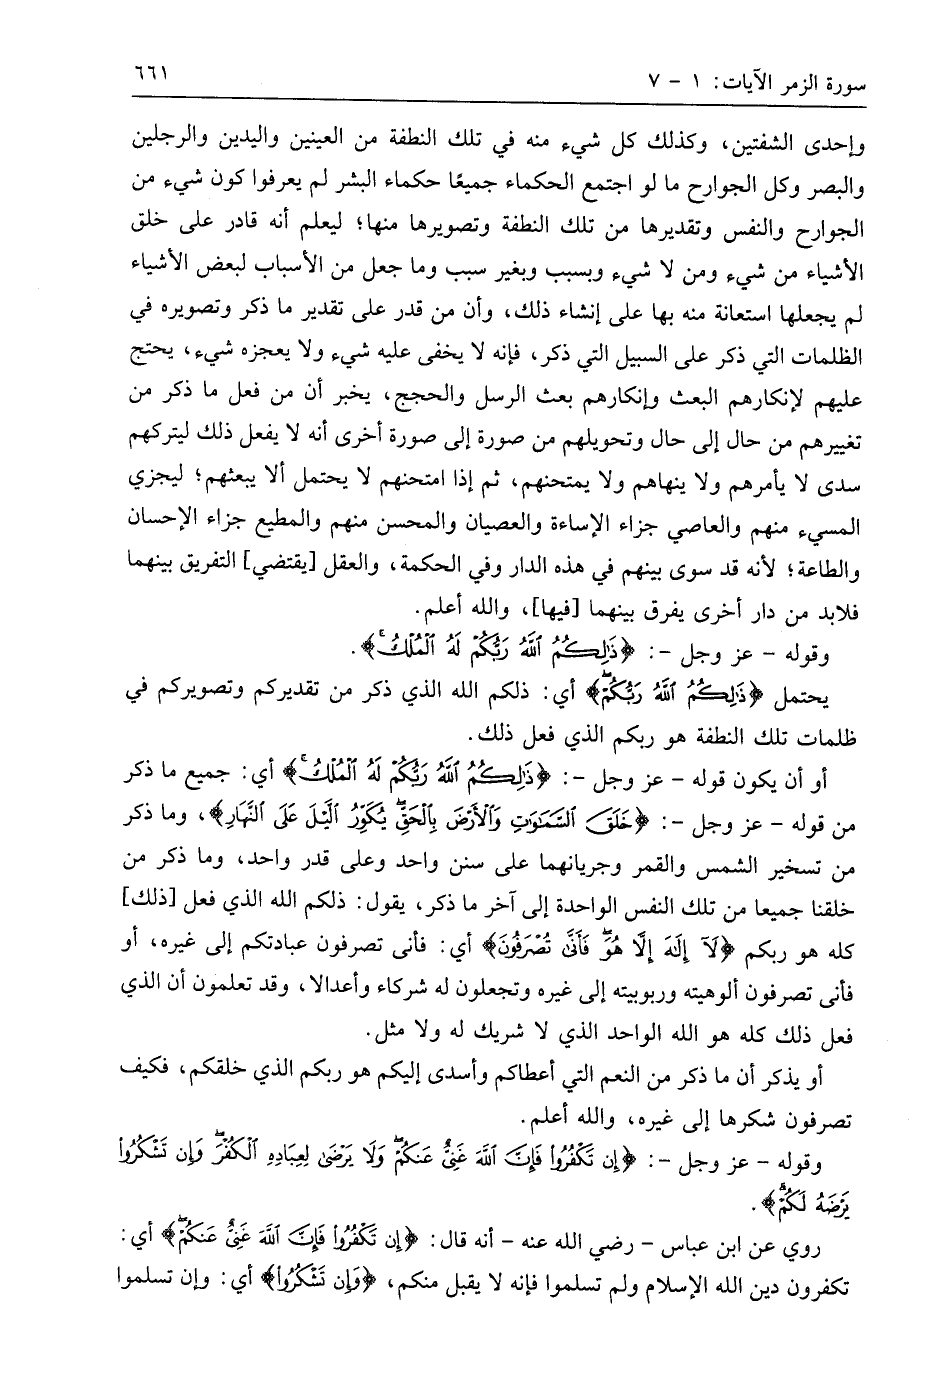 سورة الزمر الآيات: ١ - ٧
٦٦١
وإحدى الشفتين، وكذلك كل شيء منه في تلك النطفة من العينين واليدين والرجلين
والبصر وكل الجوارح ما لو اجتمع الحكماء جميعًا حكماء البشر لم يعرفوا كون شيء من
الجوارح والنفس وتقديرها من تلك النطفة وتصويرها منها؛ ليعلم أنه قادر على خلق
الأشياء من شيء ومن لا شيء وبسبب وبغير سبب وما جعل من الأسباب لبعض الأشياء
لم يجعلها استعانة منه بها على إنشاء ذلك، وأن من قدر على تقدير ما ذكر وتصويره في
الظلمات التي ذكر على السبيل التي ذكر، فإنه لا يخفى عليه شيء ولا يعجزه شيء، يحتج
عليهم لإنكارهم البعث وإنكارهم بعث الرسل والحجج، يخبر أن من فعل ما ذكر من
تغييرهم من حال إلى حال وتحويلهم من صورة إلى صورة أخرى أنه لا يفعل ذلك ليتركهم
سدى لا يأمرهم ولا ينهاهم ولا يمتحنهم، ثم إذا امتحنهم لا يحتمل ألا يبعثهم؛ ليجزي
المسيء منهم والعاصي جزاء الإساءة والعصيان والمحسن منهم والمطيع جزاء الإحسان
والطاعة؛ لأنه قد سوى بينهم في هذه الدار وفي الحكمة، والعقل [يقتضي] التفريق بينهما
فلابد من دار أخرى يفرق بينهما [فيها]، والله أعلم.
وقوله - عز وجل -: ﴿ذَٰلِكُمُ ٱللَّهُ رَبُّكُمْ لَهُ ٱلْمُلْكُ ۚ﴾.
يحتمل ﴿ذَٰلِكُمُ ٱللَّهُ رَبُّكُمْ ۖ﴾ أي: ذلكم الله الذي ذكر من تقديركم وتصويركم في
ظلمات تلك النطفة هو ربكم الذي فعل ذلك.
أو أن يكون قوله - عز وجل -: ﴿ذَٰلِكُمُ ٱللَّهُ رَبُّكُمْ لَهُ ٱلْمُلْكُ ۚ﴾ أي: جميع ما ذكر
من قوله - عز وجل -: ﴿خَلَقَ ٱلسَّمَٰوَٰتِ وَٱلْأَرْضَ بِٱلْحَقِّ ۖ يُكَوِّرُ ٱلَّيْلَ عَلَى ٱلنَّهَارِ﴾، وما ذكر
من تسخير الشمس والقمر وجريانهما على سنن واحد وعلى قدر واحد، وما ذكر من
خلقنا جميعا من تلك النفس الواحدة إلى آخر ما ذكر، يقول: ذلكم الله الذي فعل [ذلك]
كله هو ربكم ﴿لَآ إِلَٰهَ إِلَّا هُوَ ۖ فَأَنَّىٰ تُصْرَفُونَ﴾ أي: فأنى تصرفون عبادتكم إلى غيره، أو
فأنى تصرفون ألوهيته وربوبيته إلى غيره وتجعلون له شركاء وأعدالا، وقد تعلمون أن الذي
فعل ذلك كله هو الله الواحد الذي لا شريك له ولا مثل.
أو يذكر أن ما ذكر من النعم التي أعطاكم وأسدى إليكم هو ربكم الذي خلقكم، فكيف
تصرفون شكرها إلى غيره، والله أعلم.
وقوله - عز وجل -: ﴿إِن تَكْفُرُوا۟ فَإِنَّ ٱللَّهَ غَنِىٌّ عَنكُمْ ۖ وَلَا يَرْضَىٰ لِعِبَادِهِ ٱلْكُفْرَ ۖ وَإِن تَشْكُرُوا۟
يَرْضَهُ لَكُمْ ۗ﴾.
روي عن ابن عباس - رضي الله عنه - أنه قال: ﴿إِن تَكْفُرُوا۟ فَإِنَّ ٱللَّهَ غَنِىٌّ عَنكُمْ ۖ﴾ أي:
تكفرون دين الله الإسلام ولم تسلموا فإنه لا يقبل منكم، ﴿وَإِن تَشْكُرُوا۟﴾ أي: وإن تسلموا